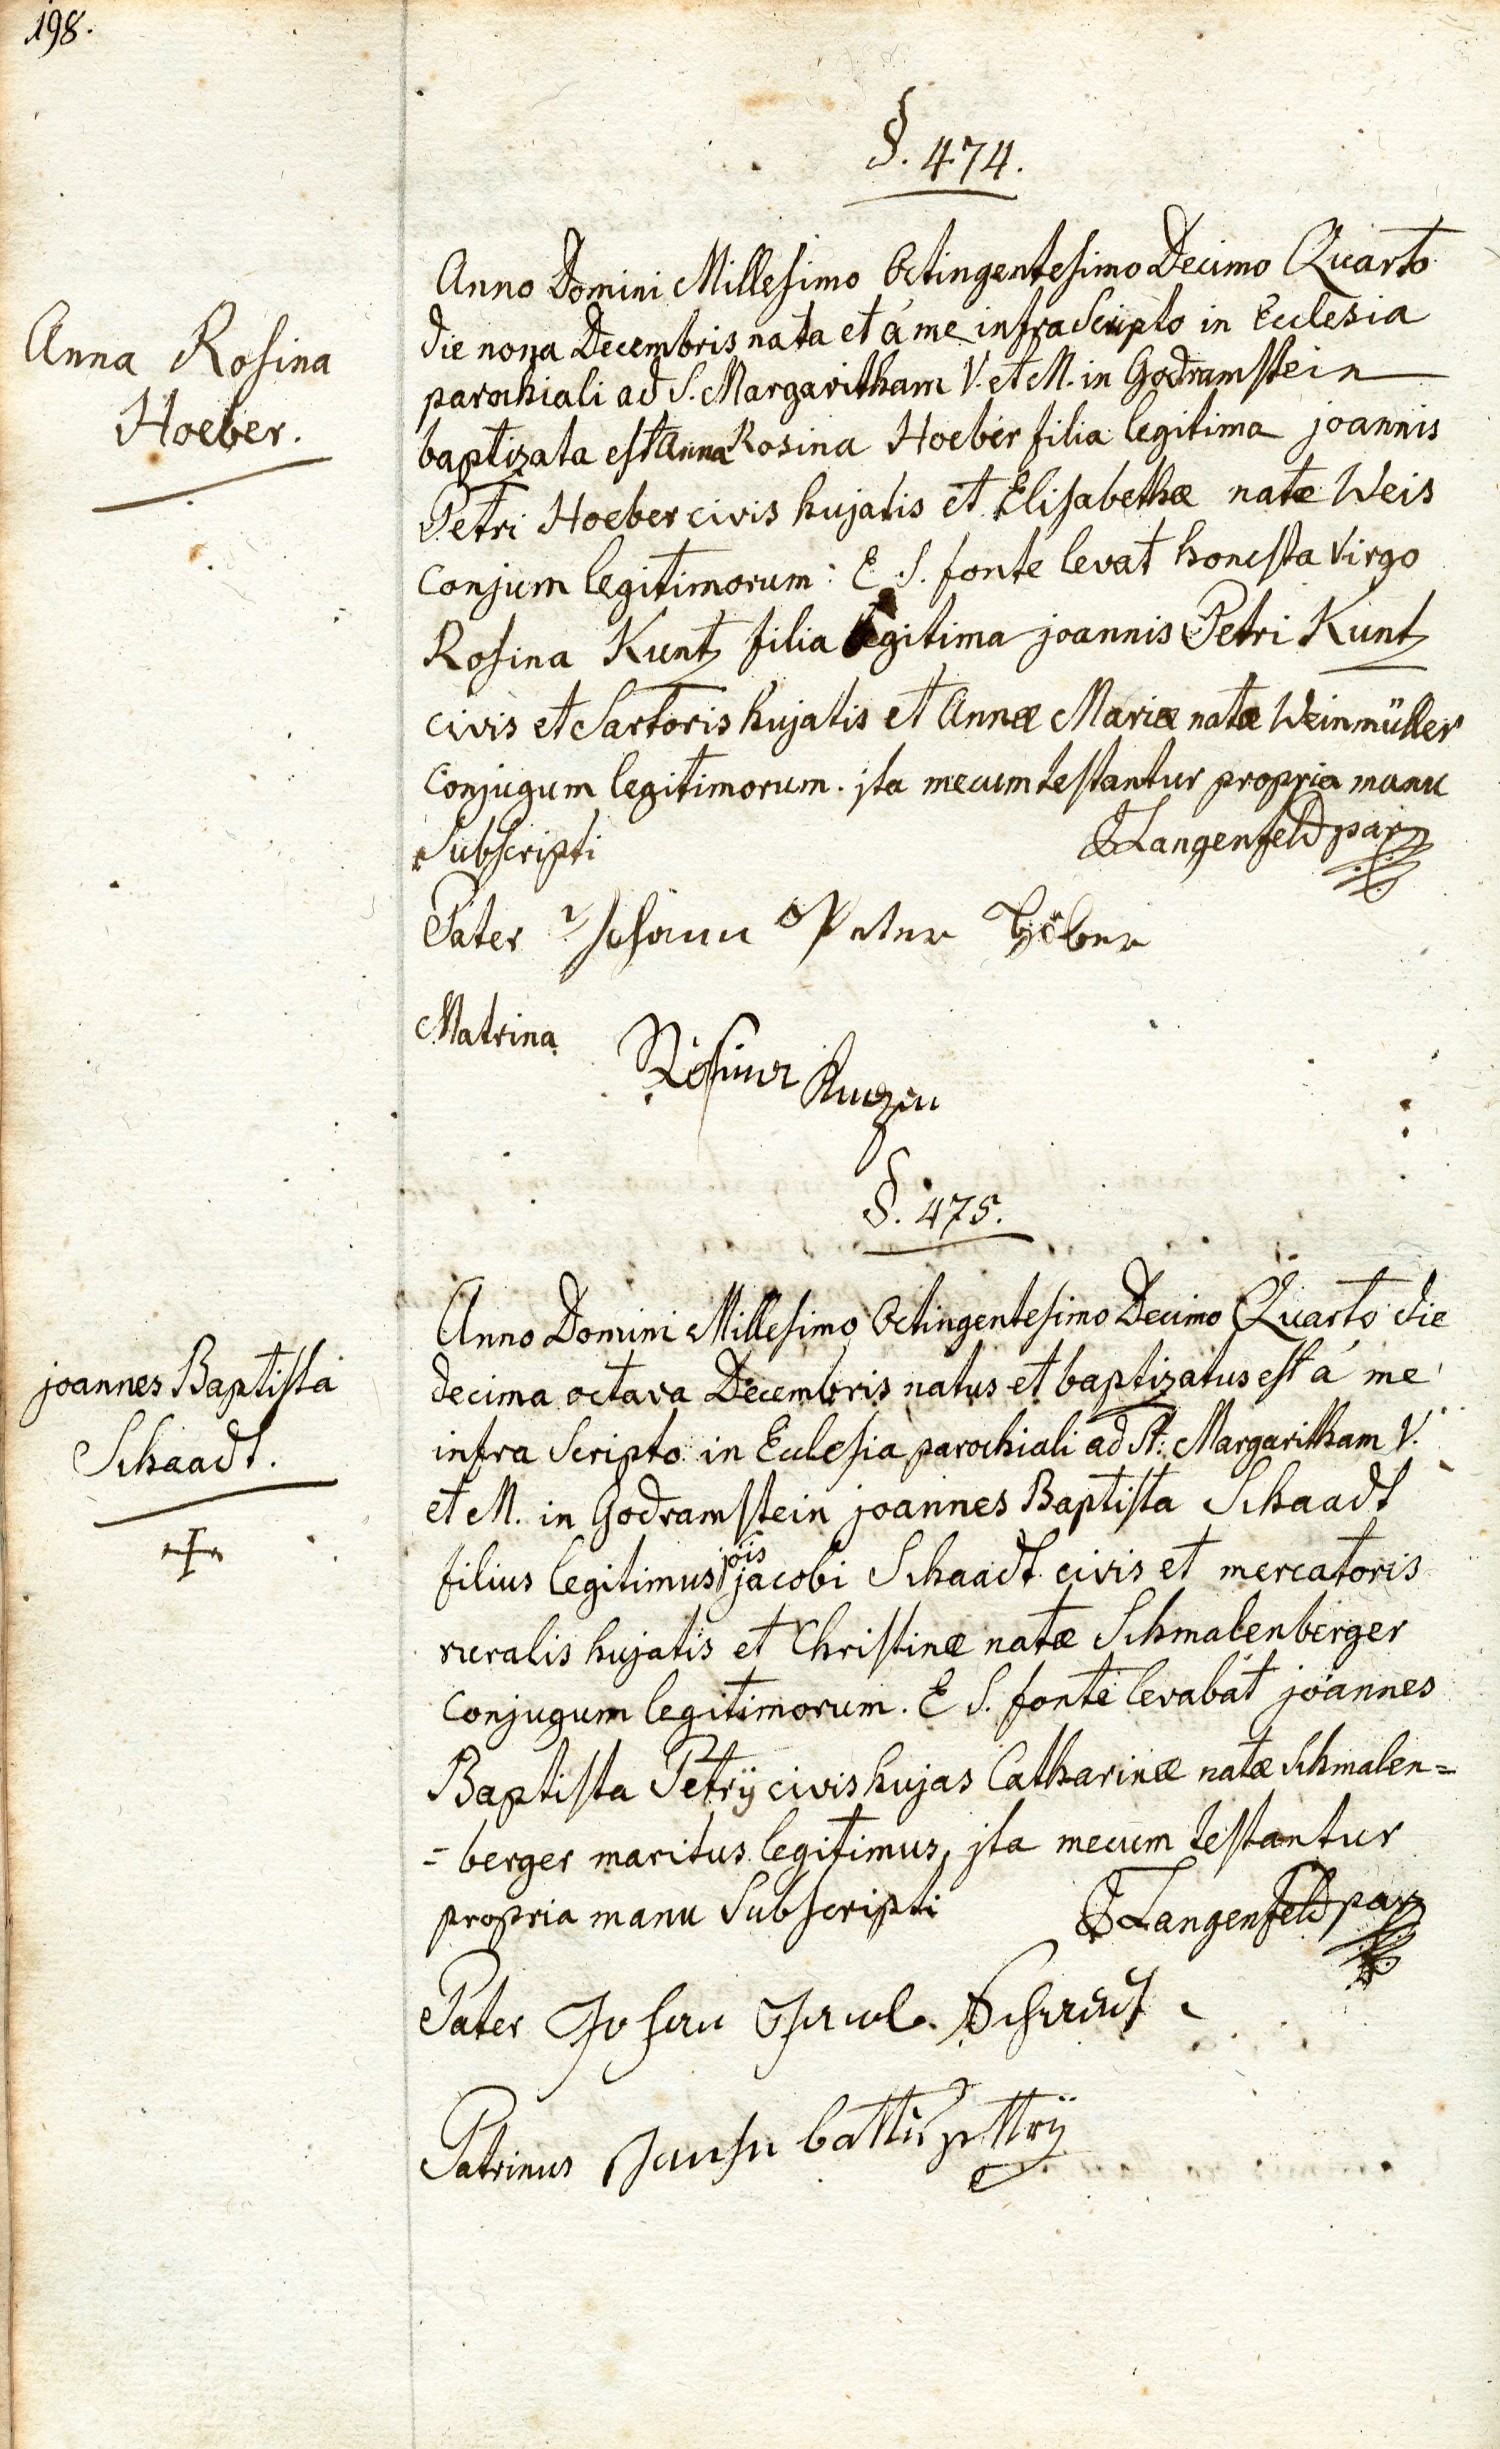 198.
§. 474.
Anna Rosina
Hoeber.
Anno Domini Millesimo Octingentesimo Decimo Quarto
die nona Decembris nata et á me infra Scripto in Ecclesia
parochiali ad S. Margaritham V. et M. in Godramstein
baptizata est Anna Rosina Hoeber filia legitima joannis
Petri Hoeber civis hujatis et Elisabethæ natæ Weis
Conjum legitimorum: E S. fonte levat honesta Virgo
Rosina Kuntz filia legitima joannis Petri Kuntz
civis et Sartoris hujatis et Annæ Mariæ natæ Weinmüller
Conjugum legitimorum. jta mecum testantur propria manu
Subscripti Langenfeld par
Pater Johann Peter Höber
Matrina Rosina Kunzen
§. 475.
joannes Baptista
Schaadt.
Anno Domini Millesimo Octingentesimo Decimo Quarto die
decima octava Decembris natus et baptizatus est á me
infra Scripto in Ecclesia parochiali ad St. Margaritham V.
et M. in Godramstein joannes Baptista Schaadt
jois
filius legitimus jacobi Schaadt civis et mercatoris
ruralis hujatis et Christinæ natæ Schmalenberger
Conjugum legitimorum. E S. fonte levabat joannes
Baptista Petrÿ civis hujas Catharinæ natæ Schmalen=
=berger maritus legitimus, jta mecum testantur
propria manu Subscripti Langenfeld par
Pater Johan Jacob Schaadt
Patrinus battist pettrÿ